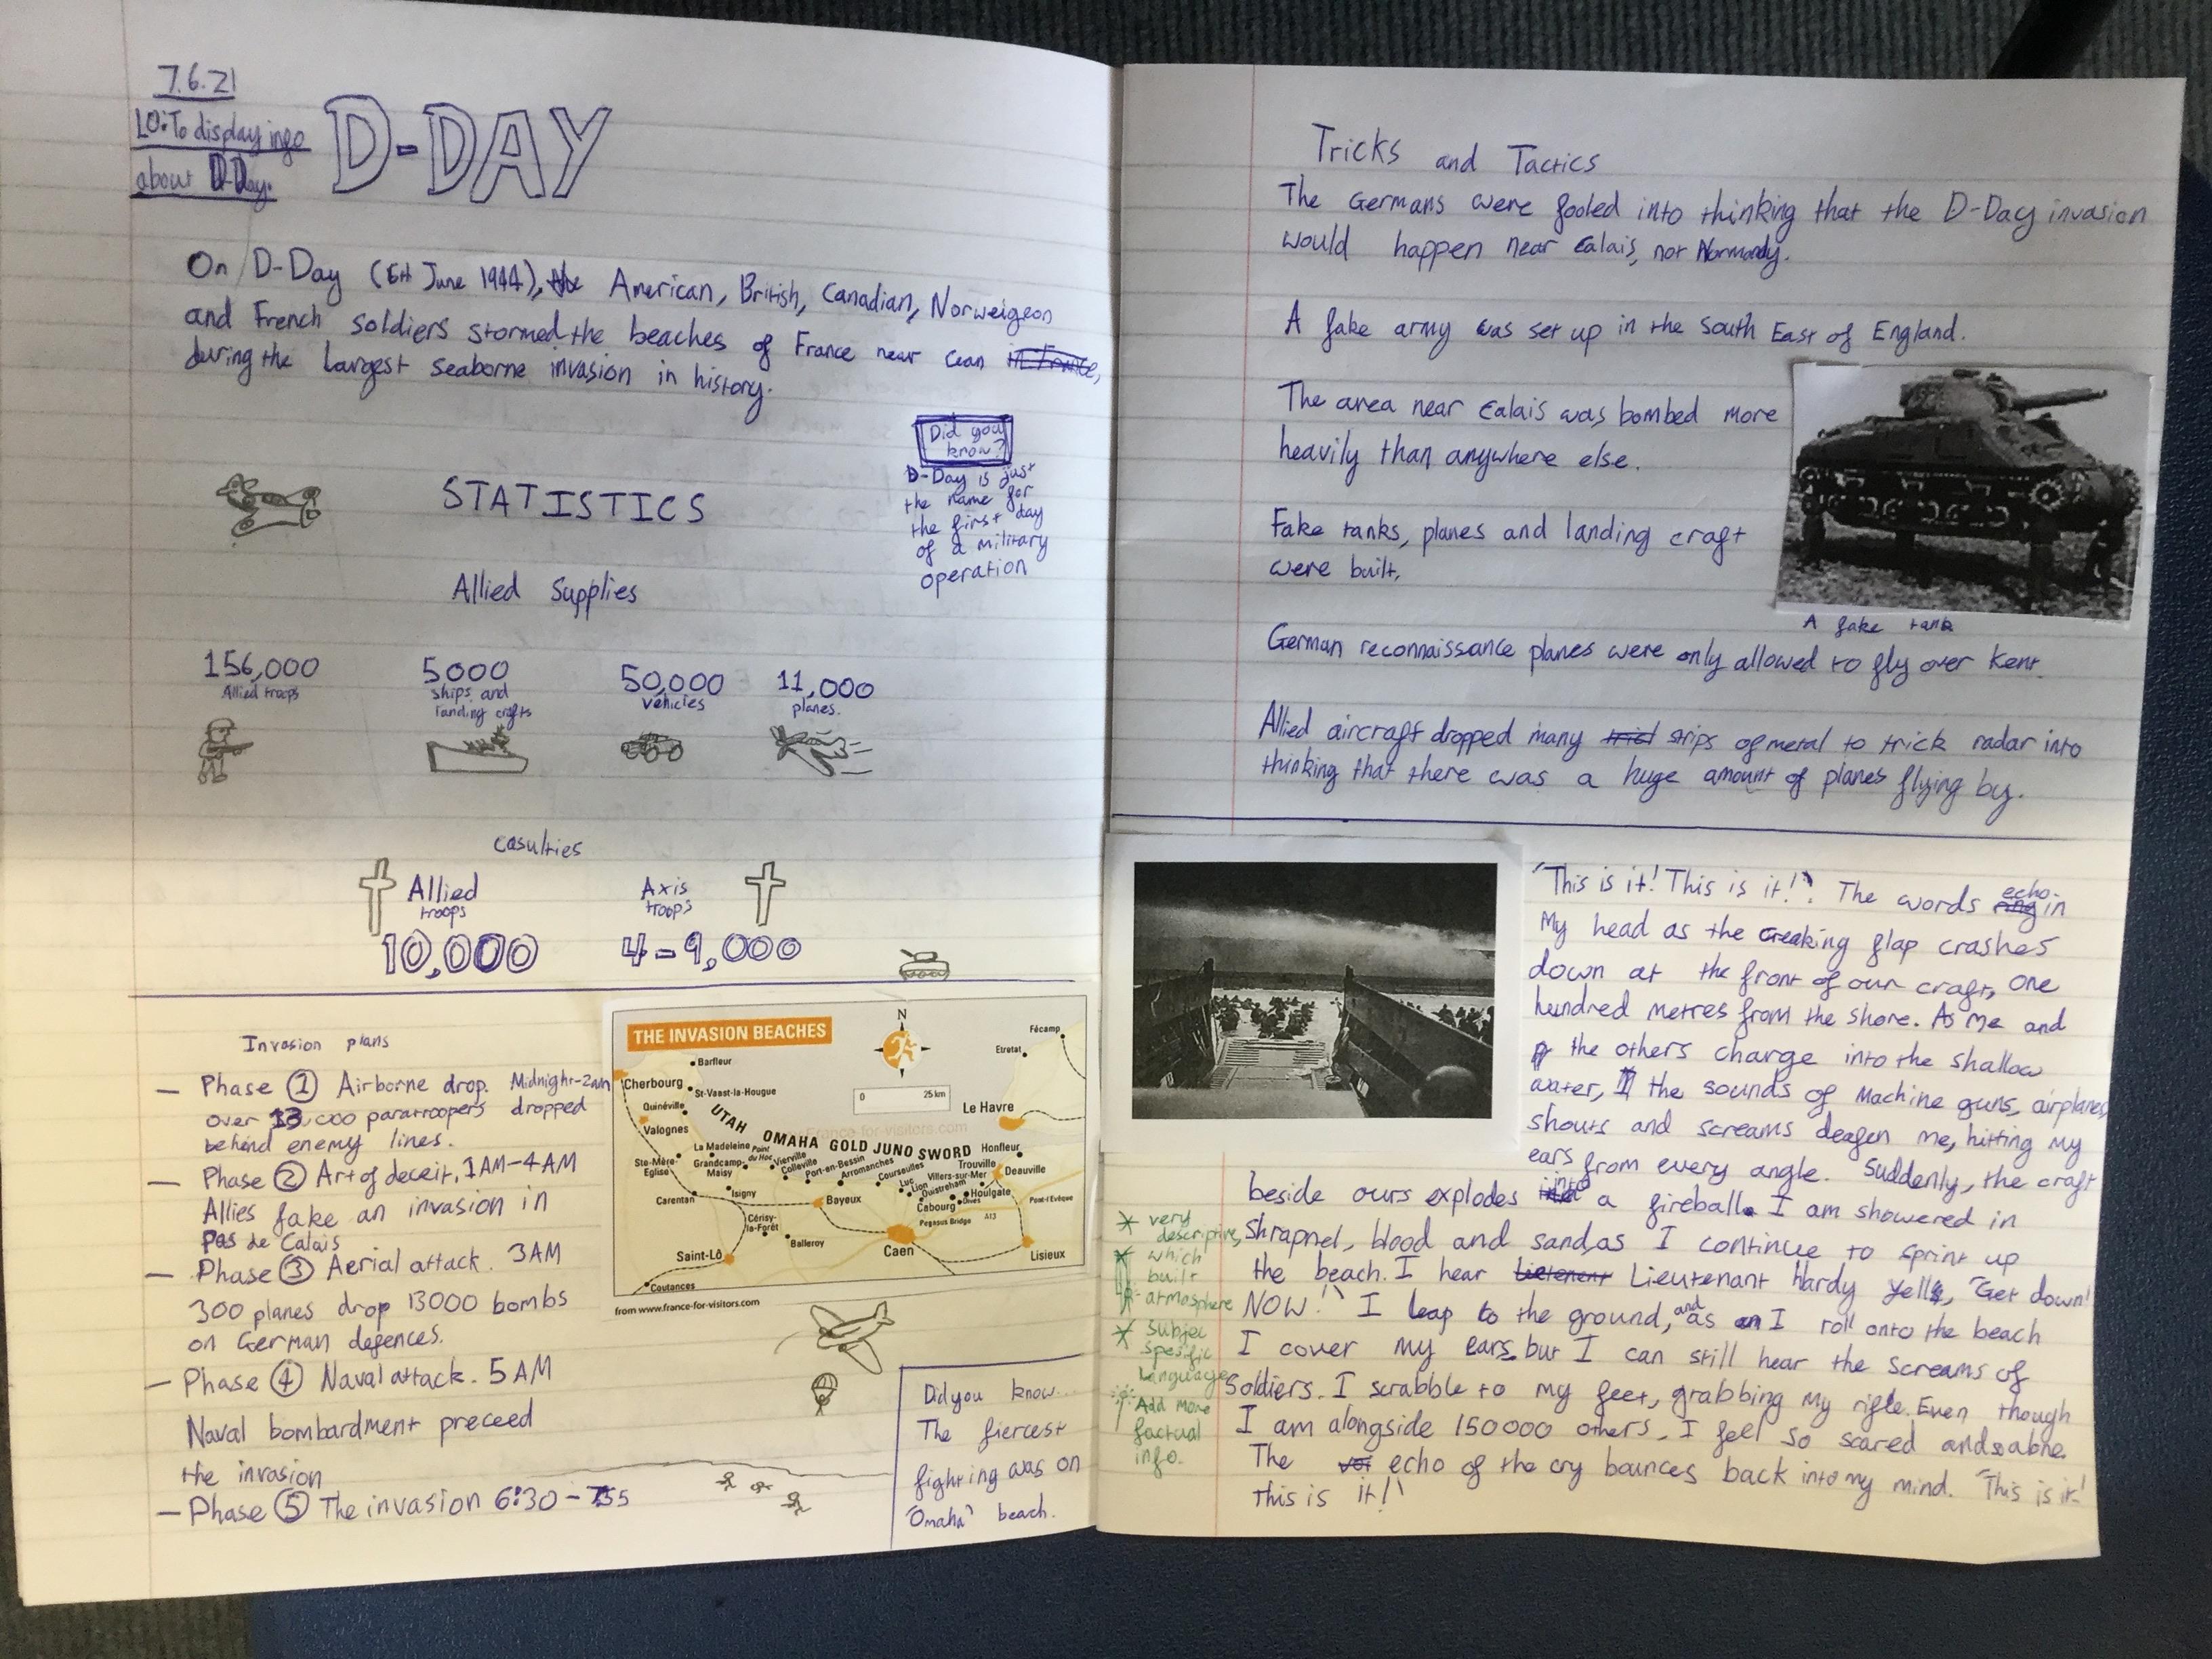 7.6.21
LO: To display info
about D-Day.
D-DAY
On D-Day (6th June 1944), the American, British, Canadian, Norweigeon
and French soldiers stormed the beaches of France near Cean in France,
during the largest seaborne invasion in history.
Did you
know?
D-Day is just
the name for
the first day
of a military
operation
STATISTICS
Allied Supplies
156,000
Allied troops
5000
ships and
landing crafts
50,000
vehicles
11,000
planes.
Casulties
Allied
troops
10,000
Axis
troops
4-9,000
Invasion plans
— Phase 1 Airborne drop. Midnight-2am
over 13,000 paratroopers dropped
behind enemy lines.
— Phase 2 Art of deceit, 1AM-4AM
Allies fake an invasion in
Pas de Calais
— Phase 3 Aerial attack. 3AM
300 planes drop 13000 bombs
on German defences.
— Phase 4 Naval attack. 5AM
Naval bombardment preceed
the invasion
— Phase 5 The invasion 6:30-755
THE INVASION BEACHES
N
Fécamp
Etretat
Barfleur
Cherbourg
St-Vaast-la-Hougue
0 25 km
Quinéville
Le Havre
Valognes
UTAH OMAHA GOLD JUNO SWORD
Honfleur
La Madeleine
Pointe du Hoc
Vierville
Ste-Mère-Eglise
Grandcamp-Maisy
Colleville
Port-en-Bessin
Arromanches
Courseulles
Trouville
Deauville
Luc
Lion
Villers-sur-Mer
Ouistreham
Houlgate
Carentan
Isigny
Bayeux
Cabourg
Dives
Pont-l'Evêque
Cérisy-la-Forêt
Pegasus Bridge
A13
Balleroy
Saint-Lô
Caen
Lisieux
Coutances
from www.france-for-visitors.com
Did you know...
The fiercest
fighting was on
'Omaha' beach.
Tricks and Tactics
The Germans were fooled into thinking that the D-Day invasion
would happen near Calais, not Normandy.
A fake army was set up in the South East of England.
The area near Calais was bombed more
heavily than anywhere else.
Fake tanks, planes and landing craft
were built.
A fake tank
German reconnaissance planes were only allowed to fly over Kent.
Allied aircraft dropped many strips of metal to trick radar into
thinking that there was a huge amount of planes flying by.
'This is it! This is it!'. The words echo in
My head as the creaking flap crashes
down at the front of our craft, one
hundred metres from the shore. As me and
the others charge into the shallow
water, the sounds of Machine guns, airplanes,
shouts and screams deafen me, hitting my
ears from every angle. Suddenly, the craft
beside ours explodes into a fireball. I am showered in
shrapnel, blood and sand, as I continue to sprint up
the beach. I hear Lieutenant Hardy yell, "Get down!
NOW!" I leap to the ground, and as I roll onto the beach
I cover my ears, but I can still hear the screams of
Soldiers. I scrabble to my feet, grabbing my rifle. Even though
I am alongside 150000 others, I feel so scared and so alone.
The echo of the cry bounces back into my mind. 'This is it!
This is it!'
* very
descriptive,
* which
built
atmosphere
* Subjec
spesific
language
Add more
factual
info.